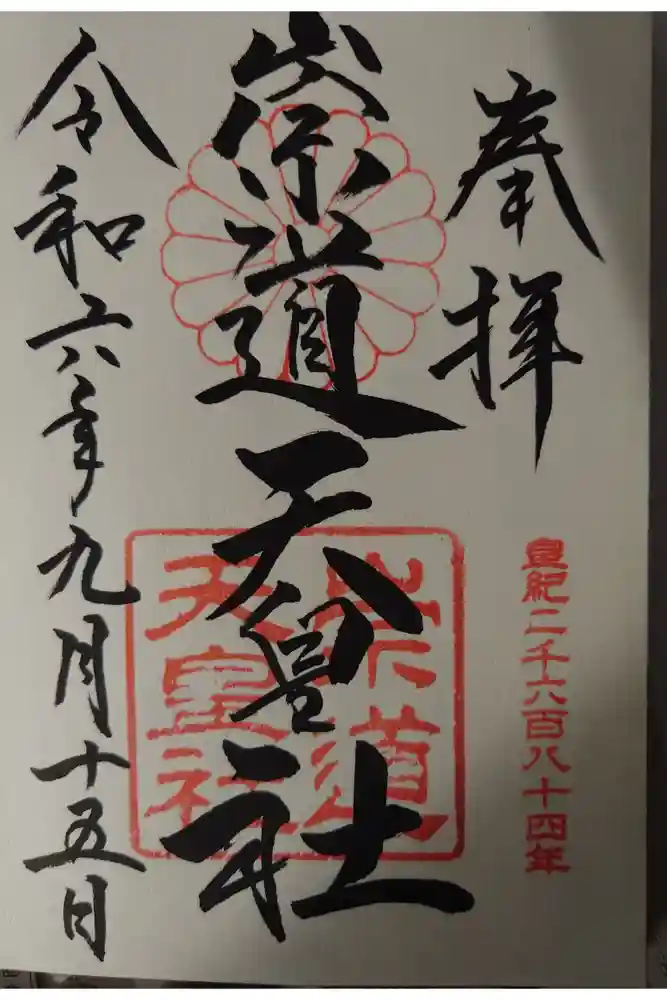 奉拝
皇紀二千六百八十四年
崇道天皇社
崇道
天皇社
令和六年九月十五日